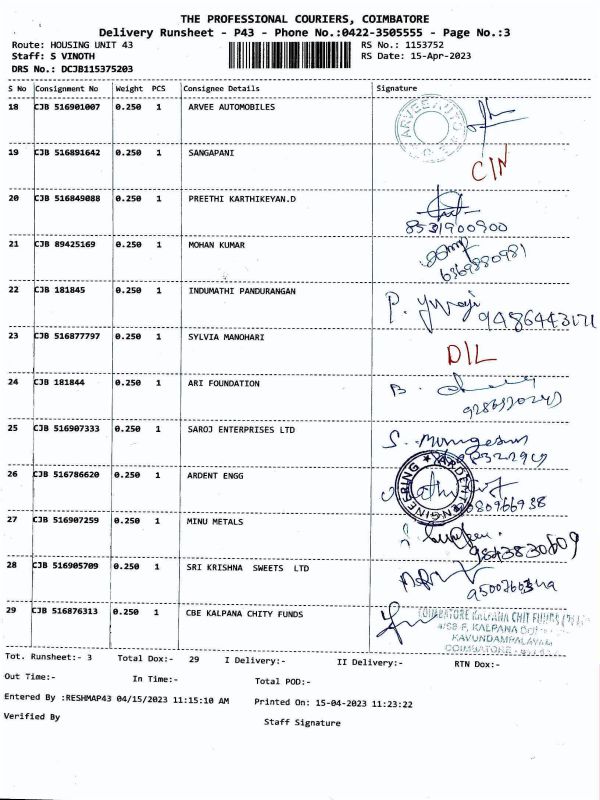 THE PROFESSIONAL COURIERS, COIMBATORE
Delivery Runsheet - P43 - Phone No.:0422-3505555 - Page No.:3
Route: HOUSING UNIT 43 RS No.: 1153752
Staff: S VINOTH RS Date: 15-Apr-2023
DRS No.: DCJB115375203
S No Consignment No Weight PCS Consignee Details Signature
18 CJB 516901007 0.250 1 ARVEE AUTOMOBILES
19 CJB 516891642 0.250 1 SANGAPANI
CIN
20 CJB 516849088 0.250 1 PREETHI KARTHIKEYAN.D
8531900900
21 CJB 89425169 0.250 1 MOHAN KUMAR
6369880981
22 CJB 181845 0.250 1 INDUMATHI PANDURANGAN
P.
23 CJB 516877797 0.250 1 SYLVIA MANOHARI
D/L
24 CJB 181844 0.250 1 ARI FOUNDATION
B.
25 CJB 516907333 0.250 1 SAROJ ENTERPRISES LTD
S. Murugesan
26 CJB 516786620 0.250 1 ARDENT ENGG
ARDENT ENGINEERING
27 CJB 516907259 0.250 1 MINU METALS
9843830609
28 CJB 516905709 0.250 1 SRI KRISHNA SWEETS LTD
29 CJB 516876313 0.250 1 CBE KALPANA CHITY FUNDS
COIMBATORE KALPANA CHIT FUNDS
KAVUNDAMPALAYAM
COIMBATORE
Tot. Runsheet:- 3 Total Dox:- 29 I Delivery:- II Delivery:- RTN Dox:-
Out Time:- In Time:- Total POD:-
Entered By :RESHMAP43 04/15/2023 11:15:10 AM Printed On: 15-04-2023 11:23:22
Verified By Staff Signature